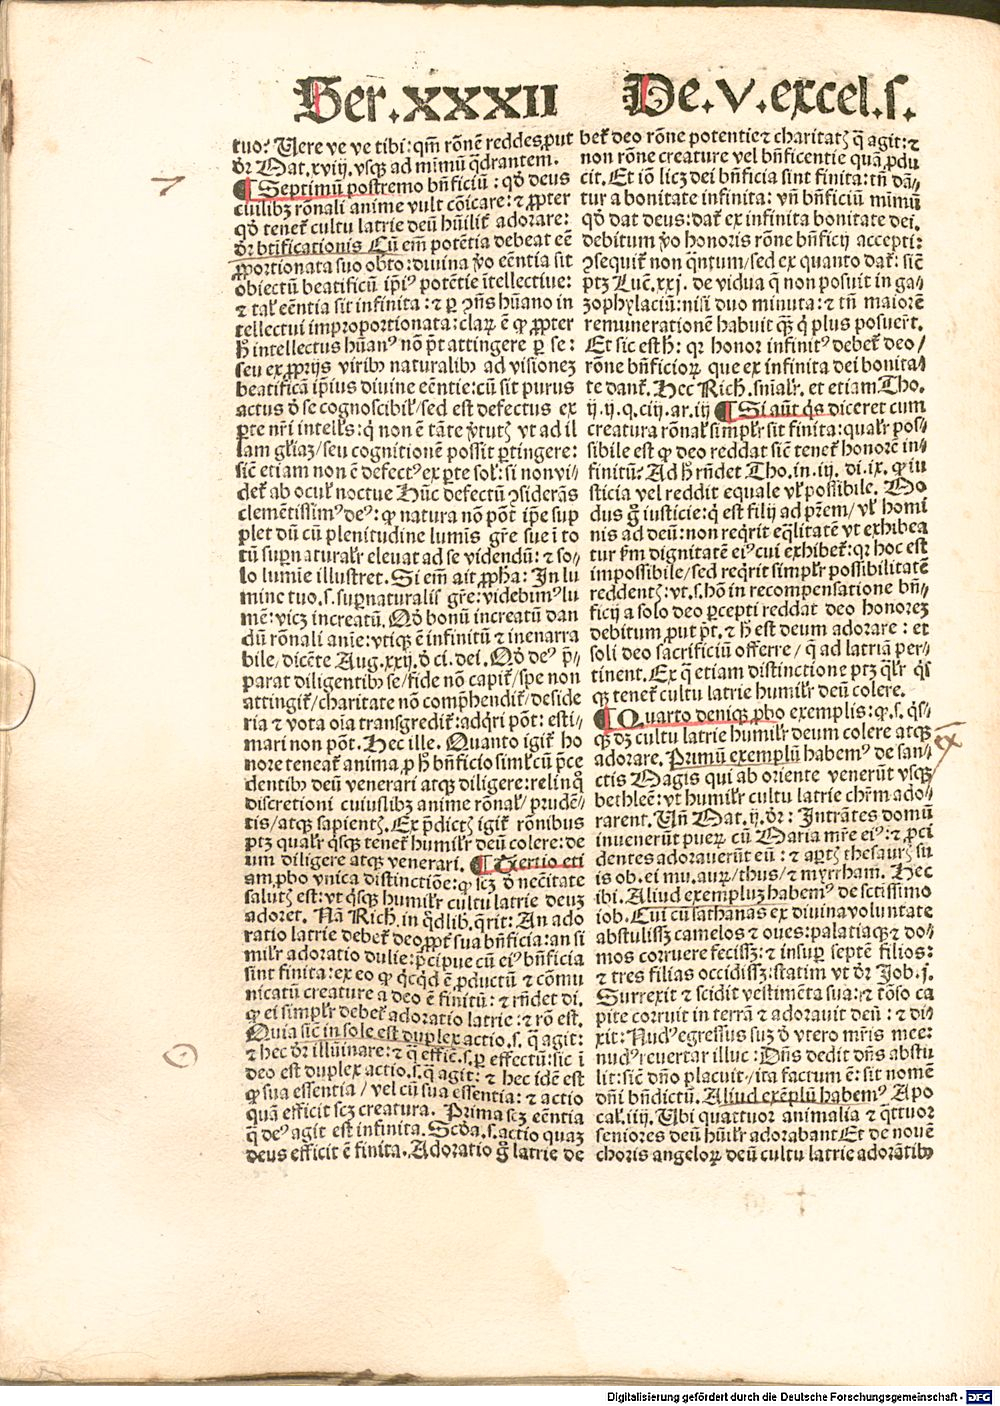 Ser. XXXII De. V. excel. s.
tuo? Vere ve ve tibi: qm̄ rōnē reddes, put
dr̄ Mat. xviij. vsq; ad minimū q̄drantem.
¶ Septimū postremo bn̄ficiū: qd̓ deus
cuilibꝫ rōnali anime vult cōicare: ⁊ ꝓpter
qd̓ tenet᷑ cultu latrie deū hūilit̓ adorare:
dr̄ btīficationis Cū em̄ potētia debeat eē
ꝓportionata suo obto: diuina ꝟo eēntia sit
obiectū beatificū ip̄iꝰ potētie ītellectiue:
⁊ tal᷑ eēntia sit infinita: ⁊ ꝑ ꝯn̄s hūano in
tellectui improportionata: claꝝ ē ꝙ ꝓpter
h̄ intellectus hūanꝰ nō pōt attingere ꝑ se:
seu ex ꝓprijs viribꝰ naturalibꝰ ad visioneꝫ
beatificā ip̄ius diuine eēntie: cū sit purus
actus de se cognoscibil᷑/ sed est defectus ex
ꝑte nr̄i intellꝰs: q̓ non ē tāte v̓tutꝭ vt ad il
lam gl̓iaꝫ/ seu cognitionē possit ꝑtingere:
sic̄ etiam non ē defectꝰ ex ꝑte sol᷑: si non vi⸗
det᷑ ab ocul᷑ noctue Hūc defectū ꝯsiderās
clemētissimꝰ deꝰ: ꝙ natura nō pōt ip̄e sup
plet dū cū plenitudine lumīs gr̄e sue ī to
tū suꝑnaturalr̄ eleuat ad se videndū: ⁊ so⸗
lo lumīe illustret. Si em̄ ait ꝓpha: In lu
mine tuo. s. suꝑnaturalis gr̄e: videbimꝰ lu
mē: vicꝫ increatū. Qd̓ bonū increatū dan
dū rōnali anīe: vtiq; ē infinitū ⁊ inenarra
bile/ dicēte Aug. xxij. d̓ ci. dei. Qd̓ deꝰ p̄⸗
parat diligentibꝰ se/ fide nō capit᷑/ spe non
attingit᷑/ charitate nō comp̄hendit᷑/ deside
ria ⁊ vota oīa transgredit᷑: adq̓ri pōt: esti⸗
mari non pōt. Hec ille. Quanto igit᷑ ho
nore teneat᷑ anima, ꝓ h̄ bn̄ficio siml᷑ cū p̄ce
dentibꝰ deū venerari atq; diligere: relinq̄
discretioni cuiuslibꝫ anime rōnal᷑/ prudē⸗
tis/ atq; sapientꝭ. Ex p̄dictꝭ igit᷑ rōnibus
ptꝫ qualr̄ q̓sq; tenet᷑ humilr̄ deū colere: de
um diligere atq; venerari. ¶ Tertio eti
am, ꝓbo vnica distinctiōe: ꝙ scꝫ d̓ necītate
salutꝭ est: vt q̓sq; humilr̄ cultu latrie deuꝫ
adoret. Nā Rich. in q̓dlib. q̄rit: An ado
ratio latrie debet᷑ deo, ꝓpt᷑ sua bn̄ficia: an si
milr̄ adoratio dulie: p̄cipue cū eiꝰ bn̄ficia
sint finita: ex eo ꝙ q̓cq̓d ē, ꝓductū ⁊ cōmu
nicatū creature a deo ē finitū: ⁊ rn̄det di.
ꝙ ei simplr̄ debet᷑ adoratio latrie: ⁊ rō est.
Quia sic̄ in sole est duplex actio. s. q̄ agit:
⁊ hec dr̄ illūinare: ⁊ q̄ effic̄. s. ꝑ effectū: sic ī
deo est duplex actio. s. q̄ agit: ⁊ hec idē est
ꝙ sua essentia/ vel cū sua essentia: ⁊ actio
quā efficit scꝫ creatura. Prima scꝫ eēntia
q̄ deꝰ agit est infinita. Scd̓a. s. actio quaꝫ
deus efficit ē finita. Adoratio g̓ latrie de
bet᷑ deo rōne potentie ⁊ charitatꝭ q̄ agit: ⁊
non rōne creature vel bn̄ficentie quā, ꝓdu
cit. Et iō licꝫ dei bn̄ficia sint finita: tn̄ dā⸗
tur a bonitate infinita: vn̄ bn̄ficiū minimū
qd̓ dat deus: dat᷑ ex infinita bonitate dei.
debitum ꝟo honoris rōne bn̄ficij accepti:
ꝯsequit᷑ non q̄ntum/ sed ex quanto dat᷑: sic̄
ptꝫ Luc̄. xxj. de vidua q̄ non posuit in ga⸗
zophylaciū: nisi duo minuta: ⁊ tn̄ maiorē
remunerationē habuit q̄ꝫ q̓ plus posuer̄t.
Et sic est h̄: qꝛ honor infinitꝰ debet᷑ deo/
rōne bn̄ficioꝝ que ex infinita dei bonita⸗
te dant᷑. Hec Rich. sn̄ialr̄. et etiam Tho.
ij. ij. q. cij. ar. iij ¶ Si aūt q̓s diceret cum
creatura rōnal᷑ simplr̄ sit finita: qualr̄ pos⸗
sibile est ꝙ deo reddat sic̄ tenet᷑ honorē in⸗
finitū? Ad h̄ rn̄det Tho. in. iij. di. ix. ꝙ iu
sticia vel reddit equale vl᷑ possibile. Mo
dus g̓ iusticie: q̓ est filij ad pr̄em/ vl᷑ homi
nis ad deū: non req̓rit eq̄litatē vt exhibea
tur ẜm dignitatē eiꝰ cui exhibet᷑: qꝛ hoc est
impossibile/ sed req̓rit simplr̄ possibilitatē
reddentꝭ: vt. s. hō in recompensatione bn̄⸗
ficij a solo deo ꝑcepti reddat deo honoreꝫ
debitum, ꝓut pōt. ⁊ h̄ est deum adorare: et
soli deo sacrificiū offerre/ q̄ ad latriā per⸗
tinent. Ex q̓ etiam distinctione ptꝫ qlr̄ q̓s
q; tenet᷑ cultu latrie humilr̄ deū colere.
¶ Quarto deniq;, ꝓbo exemplis: ꝙ. s. q̓s⸗
q; dꝫ cultu latrie humilr̄ deum colere atq;
adorare. Primū exemplū habemꝰ de san⸗
ctis Magis qui ab oriente venerūt vsq;
bethleē: vt humilr̄ cultu latrie chr̄m ado⸗
rarent. Vn̄ Mat. ij. dr̄: Intrātes domū
inuenerūt pueꝝ cū Maria mr̄e eiꝰ: ⁊, ꝓci
dentes adorauerūt eū: ⁊ aꝑtꝭ thesaurꝭ su
is ob. ei mu. auꝝ/ thus/ ⁊ myrrham. Hec
ibi. Aliud exempluꝫ habemꝰ de sctissimo
iob. Cui cū sathanas ex diuina voluntate
abstulissꝫ camelos ⁊ oues: palatiaq; ⁊ do⸗
mos corruere fecissꝫ: ⁊ insuꝑ septē filios:
⁊ tres filias occidissꝫ: statim vt dr̄ Job. j.
Surrexit ⁊ scidit vestimēta sua: ⁊ tōso ca
pite corruit in terrā ⁊ adorauit deū: ⁊ di⸗
xit: Nudꝰ egressus suꝫ d̓ vtero mr̄is mee:
nudꝰ reuertar illuc: Dn̄s dedit dn̄s abstu
lit: sic̄ dn̄o placuit/ ita factum ē: sit nomē
dn̄i bn̄dictū. Aliud exēplū habemꝰ Apo
cal. iiij. Vbi quattuor animalia ⁊ q̄ttuor
seniores deū hūilr̄ adorabant Et de nouē
choris angeloꝝ deū cultu latrie adorātibꝰ
Digitalisierung gefördert durch die Deutsche Forschungsgemeinschaft - DFG